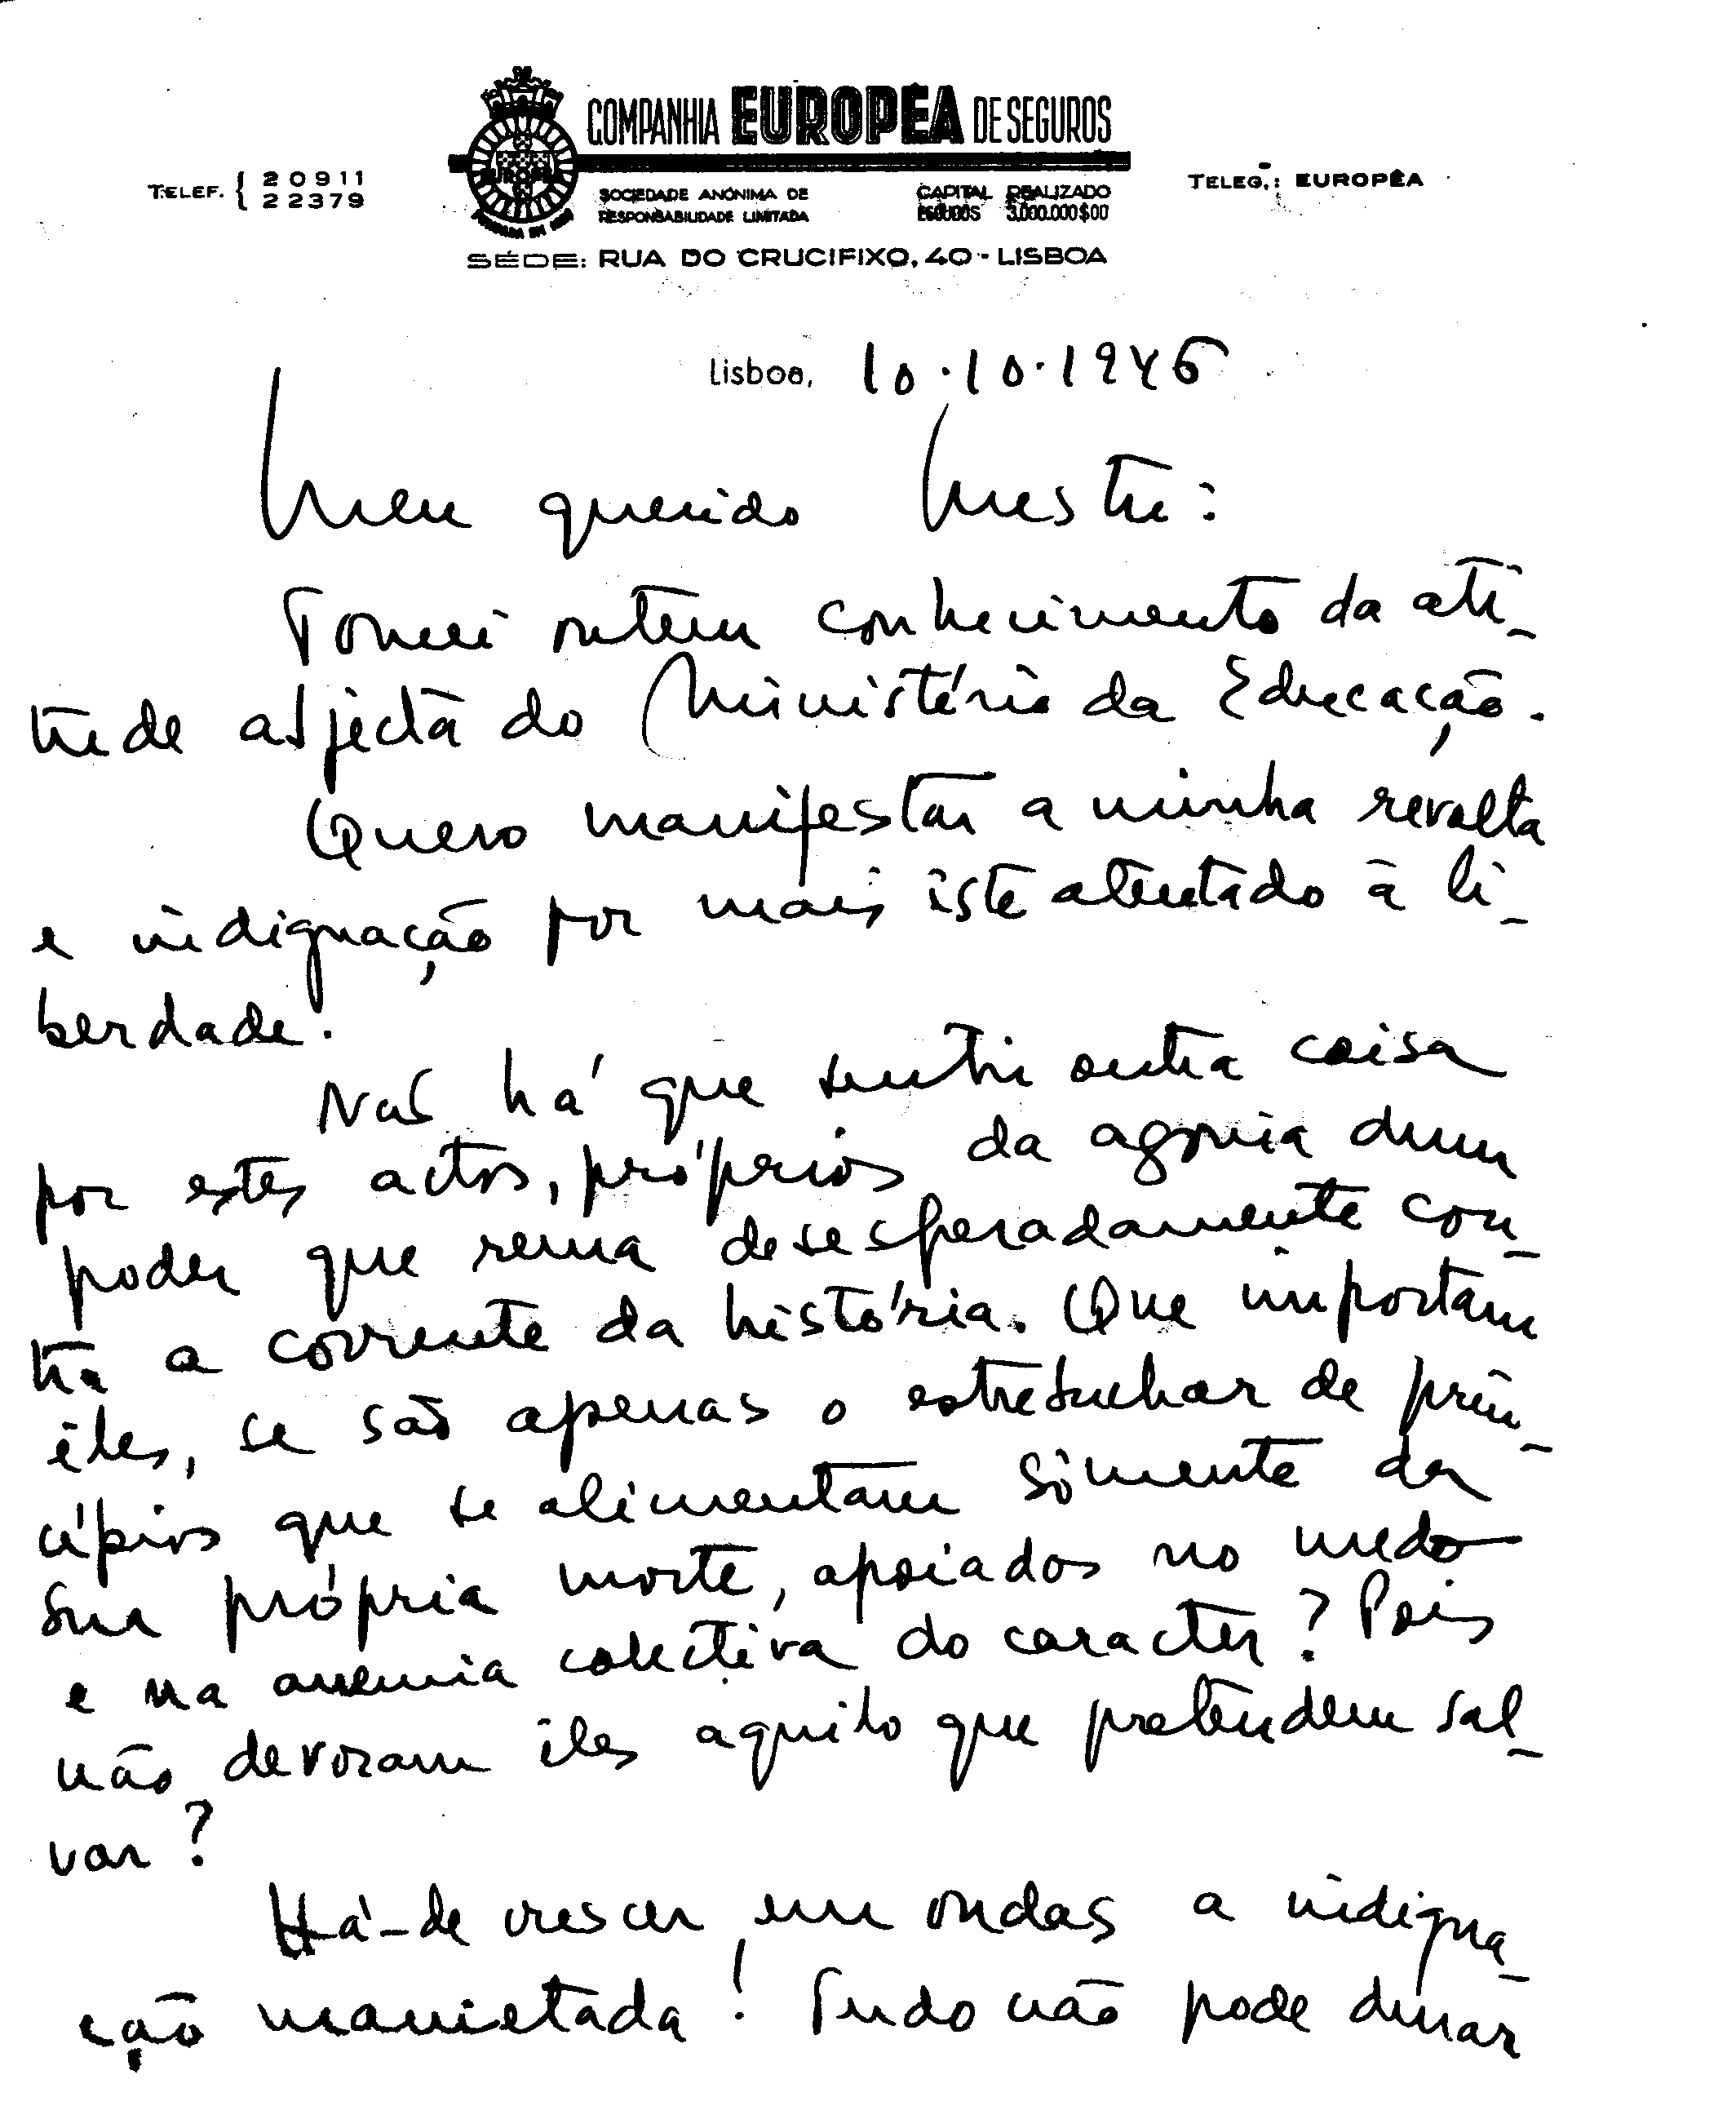 COMPANHIA EUROPÊA DE SEGUROS
TELEF. { 20911
22379
SOCIEDADE ANÓNIMA DE
RESPONSABILIDADE LIMITADA
CAPITAL REALIZADO
ESCUDOS 3.000.000$00
TELEG.: EUROPÊA
SÉDE: RUA DO CRUCIFIXO, 40 - LISBOA
Lisboa, 10.10.1946
Meu querido Mestre:
Tomei ontem conhecimento da ati-
tude abjecta do Ministério da Educação.
Quero manifestar a minha revolta
e indignação por mais êste atentado à li-
berdade.
Não há que sentir outra coisa
por estes actos, próprios da agonia dum
poder que rema desesperadamente con-
tra a corrente da história. Que importam
êles, se são apenas o estrebuchar de prin-
cípios que se alimentam sòmente da
sua própria morte, apoiados no medo
e na anemia colectiva do caracter? Pois
não devoram êles aquilo que pretendem sal-
var?
Há-de crescer em ondas a indigna-
ção manietada! Tudo não pode durar